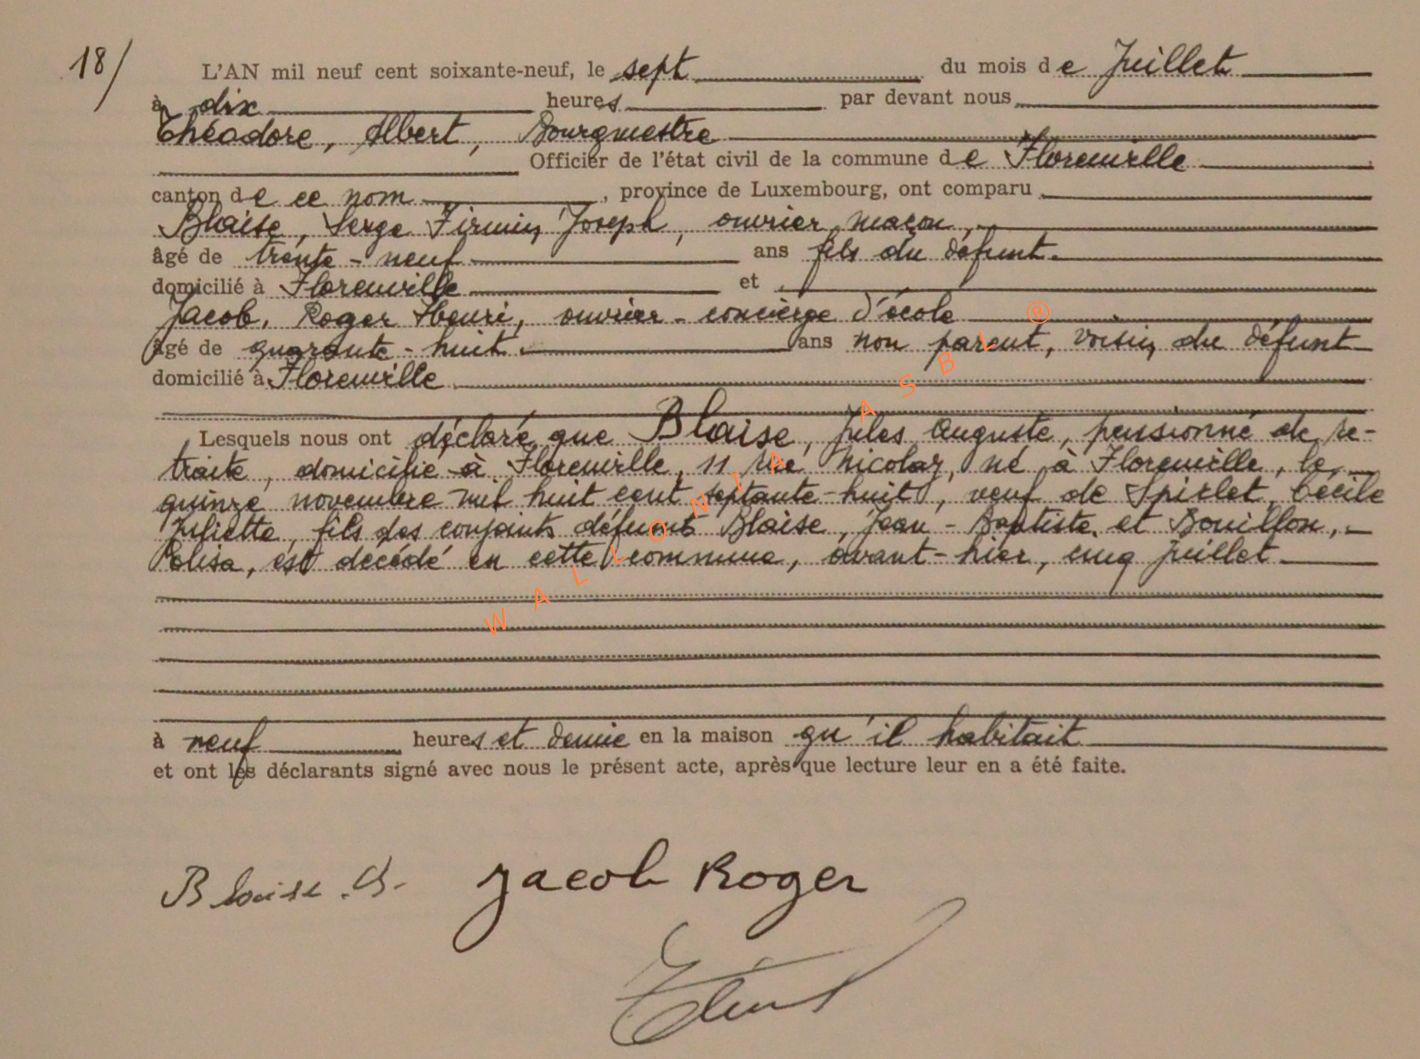 18/
L'AN mil neuf cent soixante-neuf, le sept du mois de Juillet
à dix heures par devant nous
Théodore, Albert, Bourgmestre
Officier de l'état civil de la commune de Florenville
canton de ce nom, province de Luxembourg, ont comparu
Blaise, Serge Firmin Joseph, ouvrier maçon,
âgé de trente-neuf ans fils du défunt.
domicilié à Florenville et
Jacob, Roger Henri, ouvrier-concierge d'école
âgé de quarante-huit ans non parent, voisin du défunt
domicilié à Florenville
Lesquels nous ont déclaré que Blaise, Jules Auguste, pensionné de re-
traite, domicilié à Florenville, 11 rue Nicolay, né à Florenville, le
quinze novembre mil huit cent septante-huit, veuf de Spirlet, Cécile
Juliette, fils des conjoints défunts Blaise, Jean-Baptiste et Bouillon,
Rolisa, est décédé en cette commune, avant-hier, cinq juillet
à neuf heures et demie en la maison qu'il habitait
et ont les déclarants signé avec nous le présent acte, après que lecture leur en a été faite.
Blaise .S. Jacob Roger
WALLONIA ASBL ®